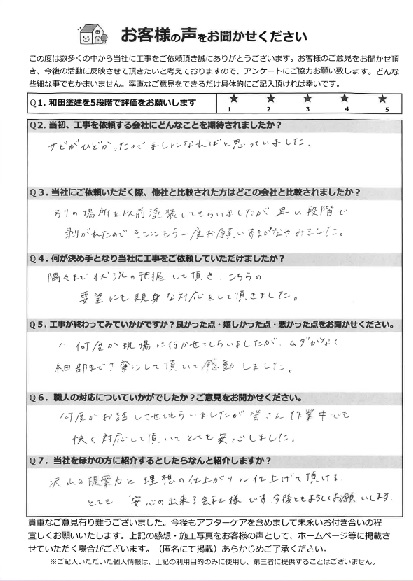 お客様の声をお聞かせください
この度は数多くの中から当社に工事をご依頼頂き誠にありがとうございます。お客様のご意見をお聞かせ頂
き、今後の活動に反映させて頂きたいと考えておりますので、アンケートにご協力お願い致します。どんな
些細な事でもかまいません。率直なご意見をできるだけ具体的にご記入頂ければ幸いです。
Q1. 和田塗建を5段階で評価をお願いします ★ ★ ★ ★ ★
1 2 3 4 5
Q2. 当初、工事を依頼する会社にどんなことを期待されましたか?
サビがひどかったがきれいになればと思っていました。
Q3. 当社にご依頼いただく際、他社と比較された方はどこの会社と比較されましたか?
別の場所を以前塗装してもらいましたが早い段階で
剥がれたので
Q4. 何が決め手となり当社に工事をご依頼していただけましたか?
隅々まで の確認して頂き、こちらの
要望にも親身な対応をして頂きました。
Q5. 工事が終わってみていかがですか?良かった点・嬉しかった点・悪かった点をお聞かせください。
何度か現場に行かせてもらいましたが、ムダがなく
細部まで丁寧にして頂いて感動しました。
Q6. 職人の対応についていかがでしたか?ご意見をお聞かせください。
何度かお話しさせてもらいましたが皆さん作業中でも
快く対応して頂いてとても安心しました。
Q7. 当社をほかの方に紹介するとしたらなんと紹介しますか?
沢山の提案力と理想の仕上がりに仕上げて頂ける
とても 安心の出来る会社様です。今後ともよろしくお願いします。
貴重なご意見有り難うございました。今後もアフターケアを含めまして末永いお付き合いの程
宜しくお願いいたします。上記の感想・施工写真をお客様の声として、ホームページ等に掲載さ
せていただく場合がございます。(匿名にて掲載)あらかじめご了承ください。
※ご記入いただいた個人情報は、上記の利用目的のみに使用し、第三者に提供することはございません。